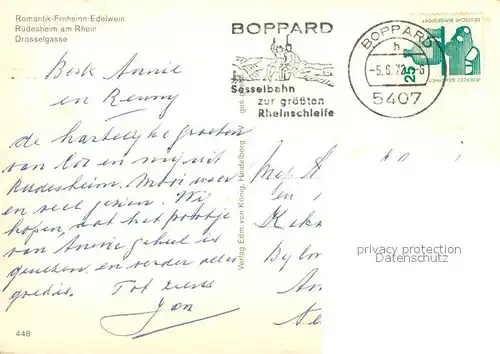 Romantik-Frohsinn-Edelwein
Rüdesheim am Rhein
Drosselgasse
BOPPARD
Sesselbahn
zur größten
Rheinschleife
BOPPARD
h
-5.6.72-8
5407
DEUTSCHE BUNDESPOST
25
Beste Annie
en Renny
de hartelijke groeten
van Cor en mij uit
Rüdesheim. Mooi weer
en veel gezien. Wij
hopen, dat het pootje
van Annie geheel is
genezen, en verder alles
goed is. Tot ziens
Jan
448
Verlag Edm. von König, Heidelberg
ges. gesch.
en
privacy protection
datenschutz